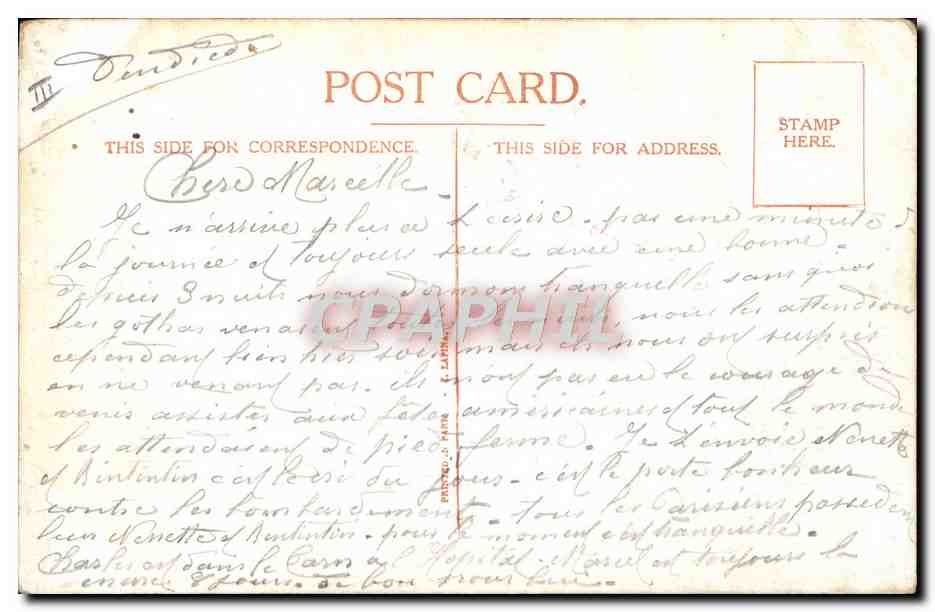 III Vendredi
POST CARD.
THIS SIDE FOR CORRESPONDENCE.
THIS SIDE FOR ADDRESS.
STAMP
HERE.
Chere Marcelle
Je n'arrive plus a t'ecrire - pas une minute d
la journée et toujours seule avec une bonne -
depuis 3 nuits nous dormons tranquelle sans quoi
les gothas venaient toutes les nuits, nous les attendions
cependant bien hier soir mais ils nous ont surpris
en ne venant pas - ils n'ont pas eu le courage de
venir assister aux fêtes américaines et tout le monde
les attendaient de pied ferme. Je t'envoie Nenette
et Rintintin c'est du jour - c'est le porte bonheur
contre les bombardements - tous les Parisiens possedent
leur Nenette et Rintintin - pour le moment c'est tranquelle.
Charles est dans le Tarn a l'Hopital - Marcel est toujours la
encore 8 jours de bon pour lui -
PRINTED IN PARIS - I. LAPINA
CPAPHIL